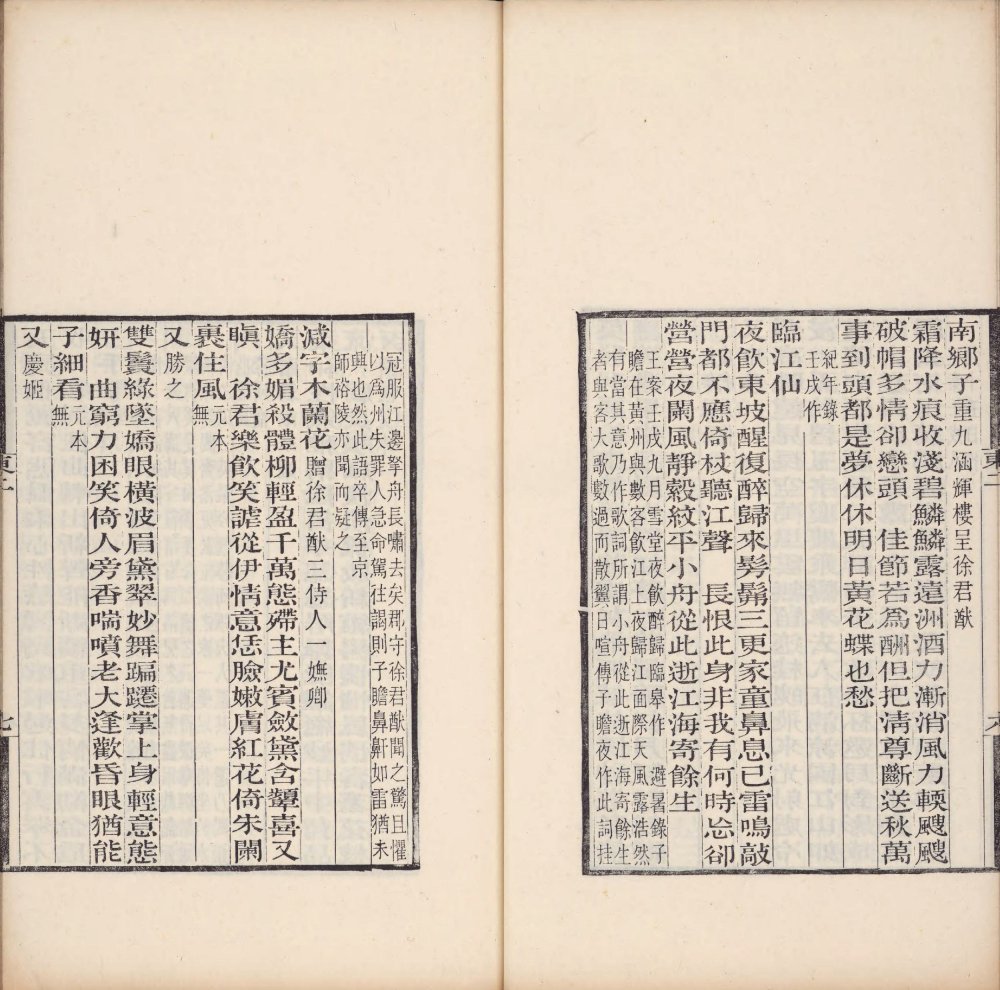 南鄉子重九涵輝樓呈徐君猷
霜降水痕收淺碧鱗鱗露遠洲酒力漸消風力輭颼颼
破帽多情卻戀頭　佳節若爲酬但把淸尊斷送秋萬
事到頭都是夢休休明日黃花蝶也愁
紀年錄
壬戌作
臨江仙
夜飮東坡醒復醉歸來髣髴三更家童鼻息已雷鳴敲
門都不應倚杖聽江聲　長恨此身非我有何時忘卻
營營夜闌風靜縠紋平小舟從此逝江海寄餘生
王案壬戌九月雪堂夜飮醉歸臨皋作　避暑錄子
瞻在黃州與數客飮江上夜歸江面際天風露浩然
有當其意乃作歌詞所謂小舟從此逝江海寄餘生
者與客大歌數過而散翼日喧傳子瞻夜作此詞挂
東二
六
冠服江邊拏舟長嘯去矣郡守徐君猷聞之驚且懼
以爲州失罪人急命駕往謁則子瞻鼻鼾如雷猶未
興也然此語卒傳至京
師裕陵亦聞而疑之
減字木蘭花贈徐君猷三侍人一嫵卿
嬌多媚殺體柳輕盈千萬態殢主尤賓斂黛含顰喜又
瞋　徐君樂飮笑謔從伊情意恁臉嫩膚紅花倚朱闌
裹住風元本無
又勝之
雙鬟綠墜嬌眼橫波眉黛翠妙舞蹁躚掌上身輕意態
妍　曲窮力困笑倚人旁香喘噴老大逢歡昏眼猶能
子細看元本無
又慶姬
東二
七